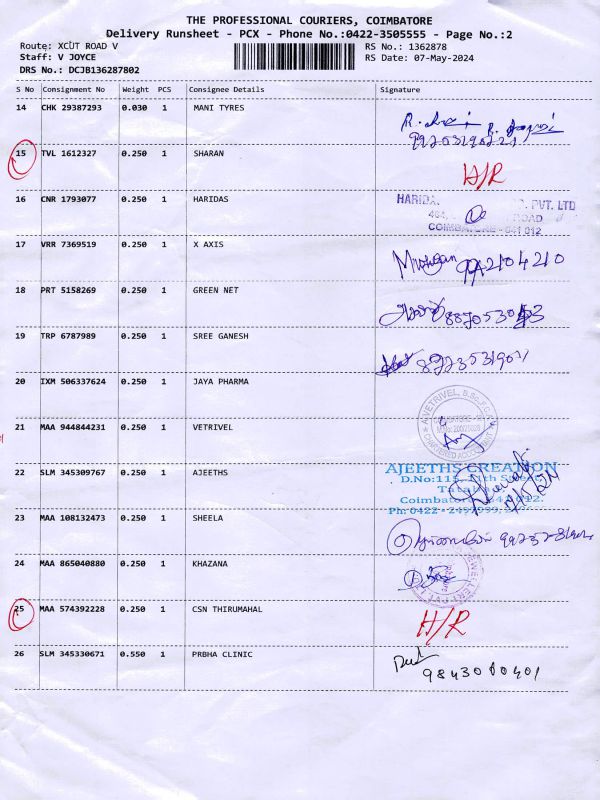 THE PROFESSIONAL COURIERS, COIMBATORE
Delivery Runsheet - PCX - Phone No.:0422-3505555 - Page No.:2
Route: XCUT ROAD V RS No.: 1362878
Staff: V JOYCE RS Date: 07-May-2024
DRS No.: DCJB136287802
S No Consignment No Weight PCS Consignee Details Signature
14 CHK 29387293 0.030 1 MANI TYRES
15 TVL 1612327 0.250 1 SHARAN H/R
16 CNR 1793077 0.250 1 HARIDAS HARIDA PVT. LTD
ROAD
COIMB
17 VRR 7369519 0.250 1 X AXIS Murugan 9942104210
18 PRT 5158269 0.250 1 GREEN NET
19 TRP 6787989 0.250 1 SREE GANESH
20 IXM 506337624 0.250 1 JAYA PHARMA
21 MAA 944844231 0.250 1 VETRIVEL A.VETRIVEL, B.Sc., F.C.A.
CHARTERED ACCOUNTANT
22 SLM 345309767 0.250 1 AJEETHS AJEETHS CREATION
Street,
Coimbatore
23 MAA 108132473 0.250 1 SHEELA
24 MAA 865040880 0.250 1 KHAZANA
25 MAA 574392228 0.250 1 CSN THIRUMAHAL H/R
26 SLM 345330671 0.550 1 PRBHA CLINIC 9843000401